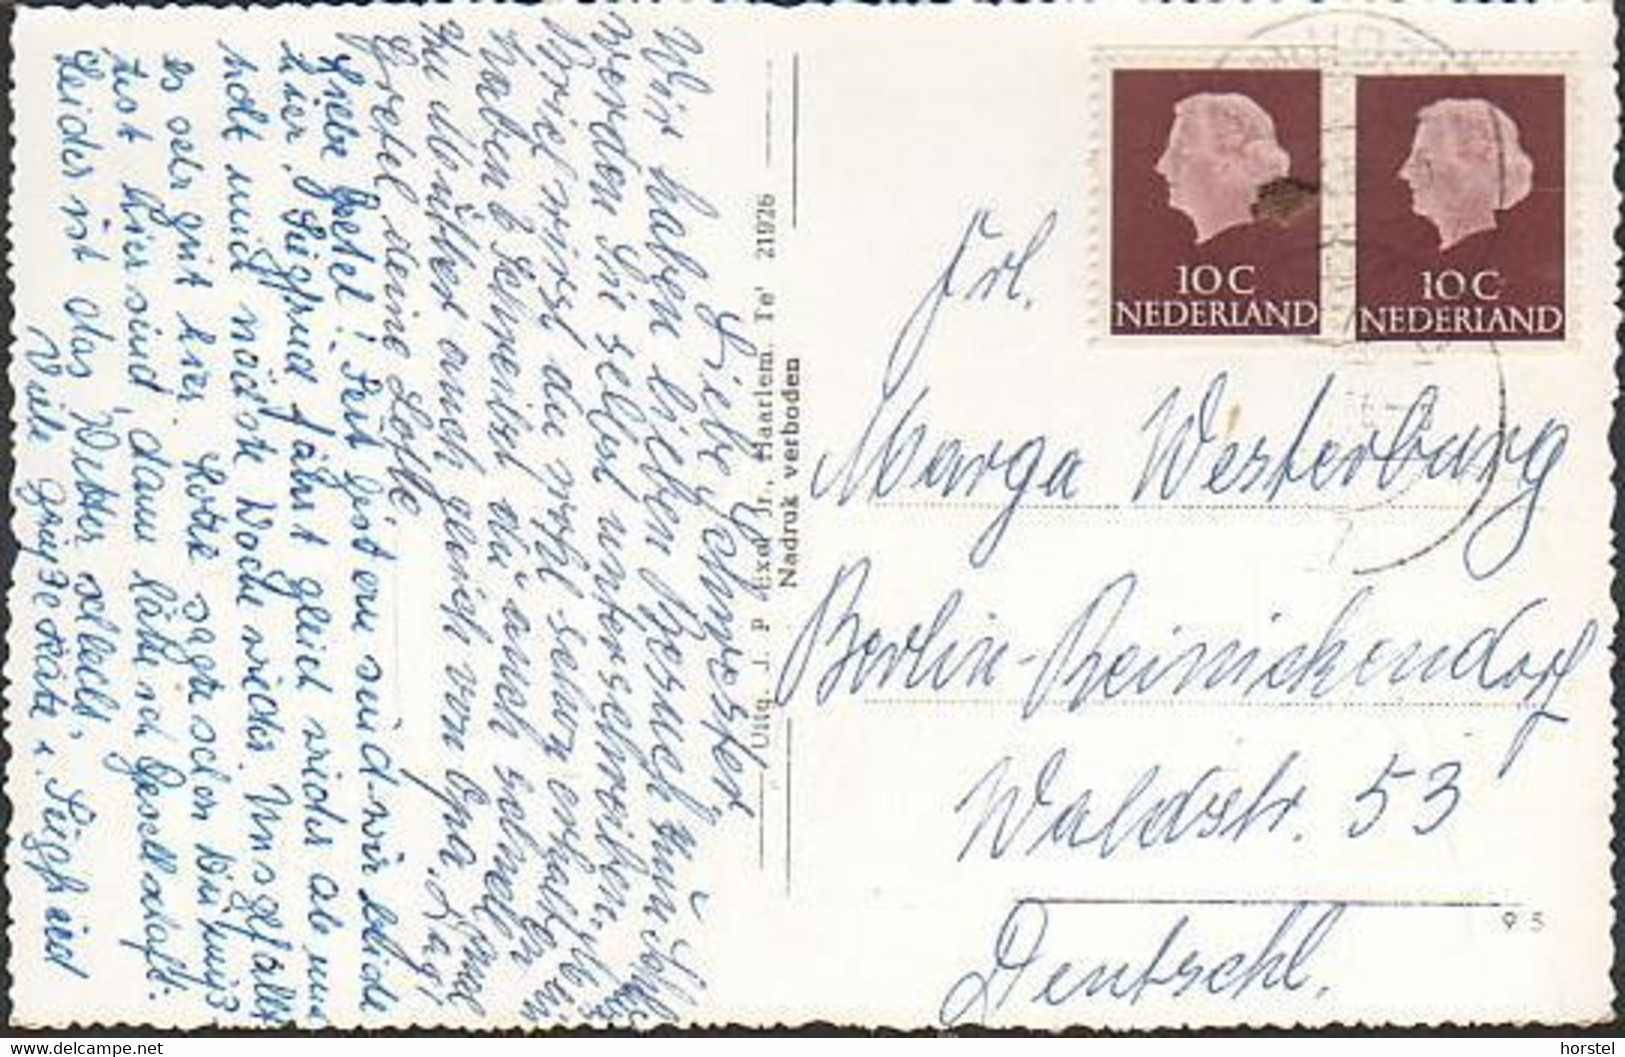 Liebe Schwester,
Wir haben lieben Besuch
werden Sie selbst unterschreiben.
Brief wirst du wohl schon erhalten
haben. Schreibst du auch schnell
zu Mutter auch gleich von Opa.
Gretel deine Lotte.
Liebe Gretel! Seit gestern sind wir beide
hier. Siegfried fährt gleich wieder ab und
holt mich nächste Woche wieder. Uns gefällt
es sehr gut hier. Lotte sagte schon Du mußt
hier sind, dann hätte ich Gesellschaft.
Leider ist das Wetter schlecht.
Viele Grüße Käte u. Siegfried
Uitg. J. P. Exel Jr., Haarlem. Te' 21926
Nadruk verboden
10 C
NEDERLAND
10 C
NEDERLAND
Frl.
Marga Westerburg
Berlin-Reinickendorf
Waldstr. 53
Deutschl.
95
horstel